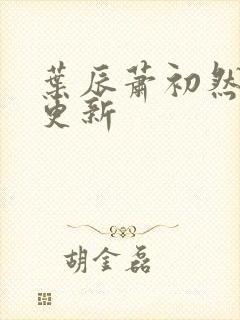 葉辰蕭初然
更新
胡金磊